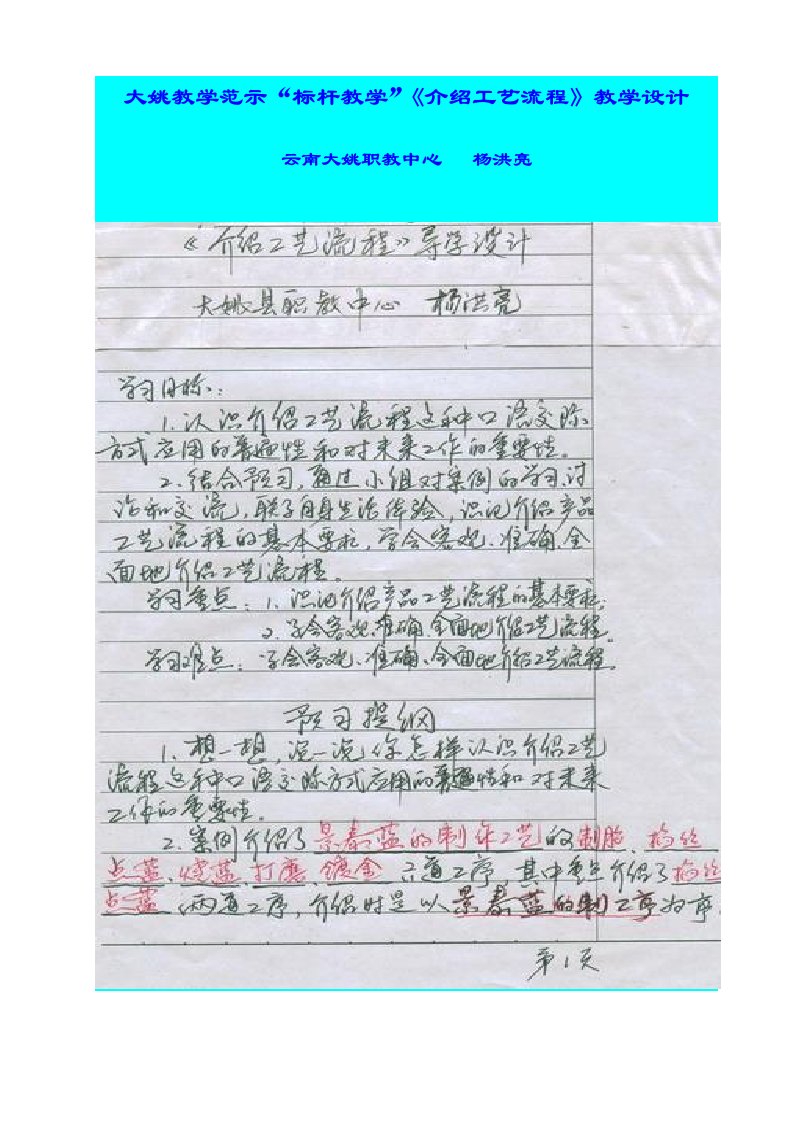 大姚教学范示“标杆教学”《介绍工艺流程》教学设计
云南大姚职教中心 杨洪亮
《介绍工艺流程》导学设计
大姚县职教中心 杨洪亮
学习目标：
1.认识介绍工艺流程这种口语交际
方式应用的普遍性和对未来工作的重要性。
2.结合预习，通过小组对案例的学习、讨
论和交流，联系自身生活体验，识记介绍产品
工艺流程的基本要求，学会客观、准确、全
面地介绍工艺流程。
学习重点：1.识记介绍产品工艺流程的基本要求；
2.学会客观、准确、全面地介绍工艺流程。
学习难点：学会客观、准确、全面地介绍工艺流程。
预习提纲
1.想一想，说一说你怎样认识介绍工艺
流程这种口语交际方式应用的普遍性和对未来
工作的重要性。
2.案例介绍了景泰蓝的制作工艺的制胎、掐丝
点蓝、烧蓝、打磨、镀金六道工序，其中重点介绍了掐丝
点蓝两道工序，介绍时是以景泰蓝的制工序为序，
第1页